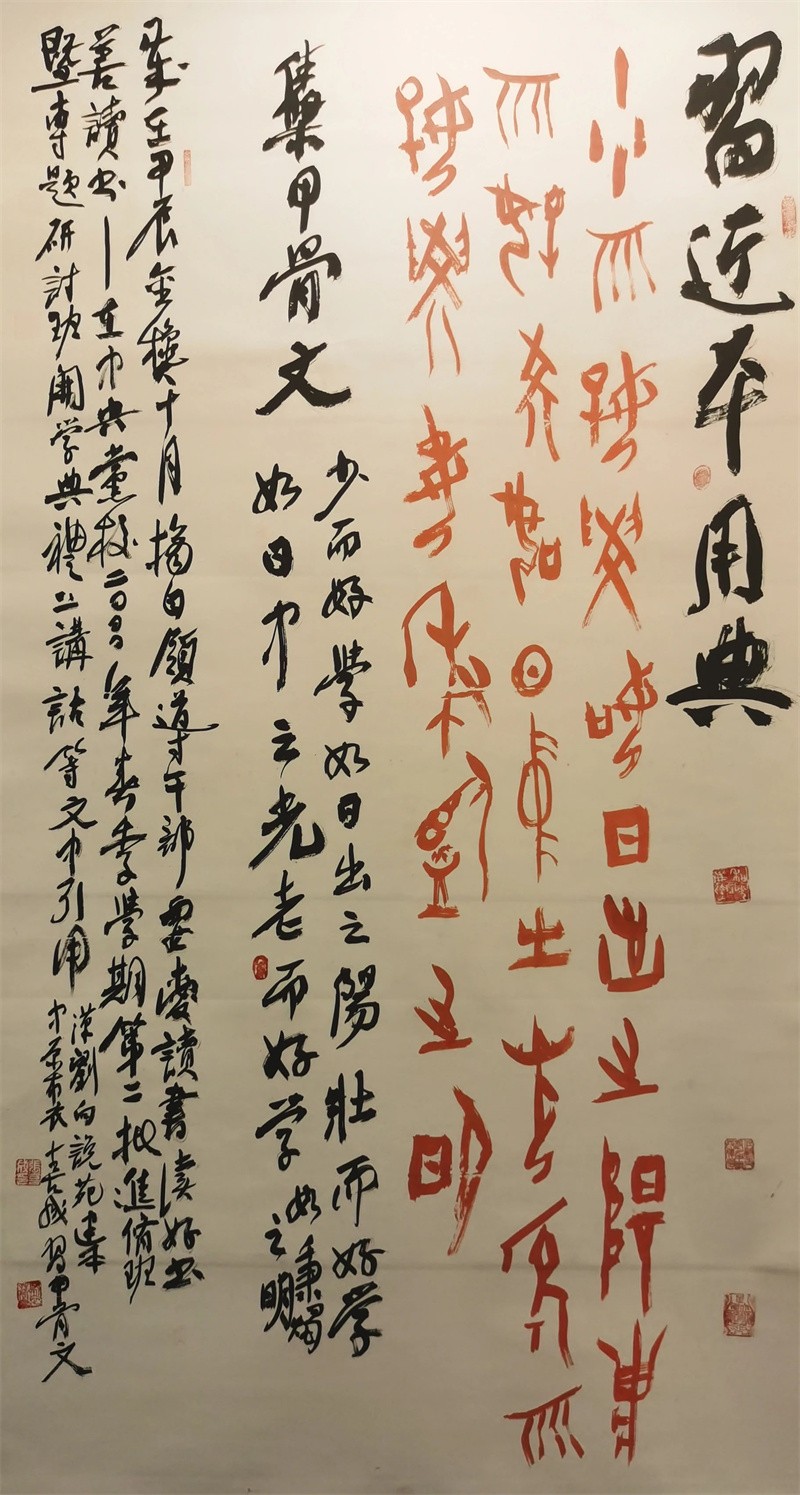 習近平用典
少而好學如日出之陽壯
而好學如日中之光老而
好學如秉燭之明
集甲骨文
少而好學如日出之陽壯而好学
如日中之光老而好学如秉燭之明
歲在甲辰金穐十月摘自領導干部要愛讀書讀好书
善讀书——在中央黨校二〇〇九年春季學期第二批進修班
暨專題研討班開学典禮上講話等文中引用
漢劉向說苑建本
中原布衣習甲骨文